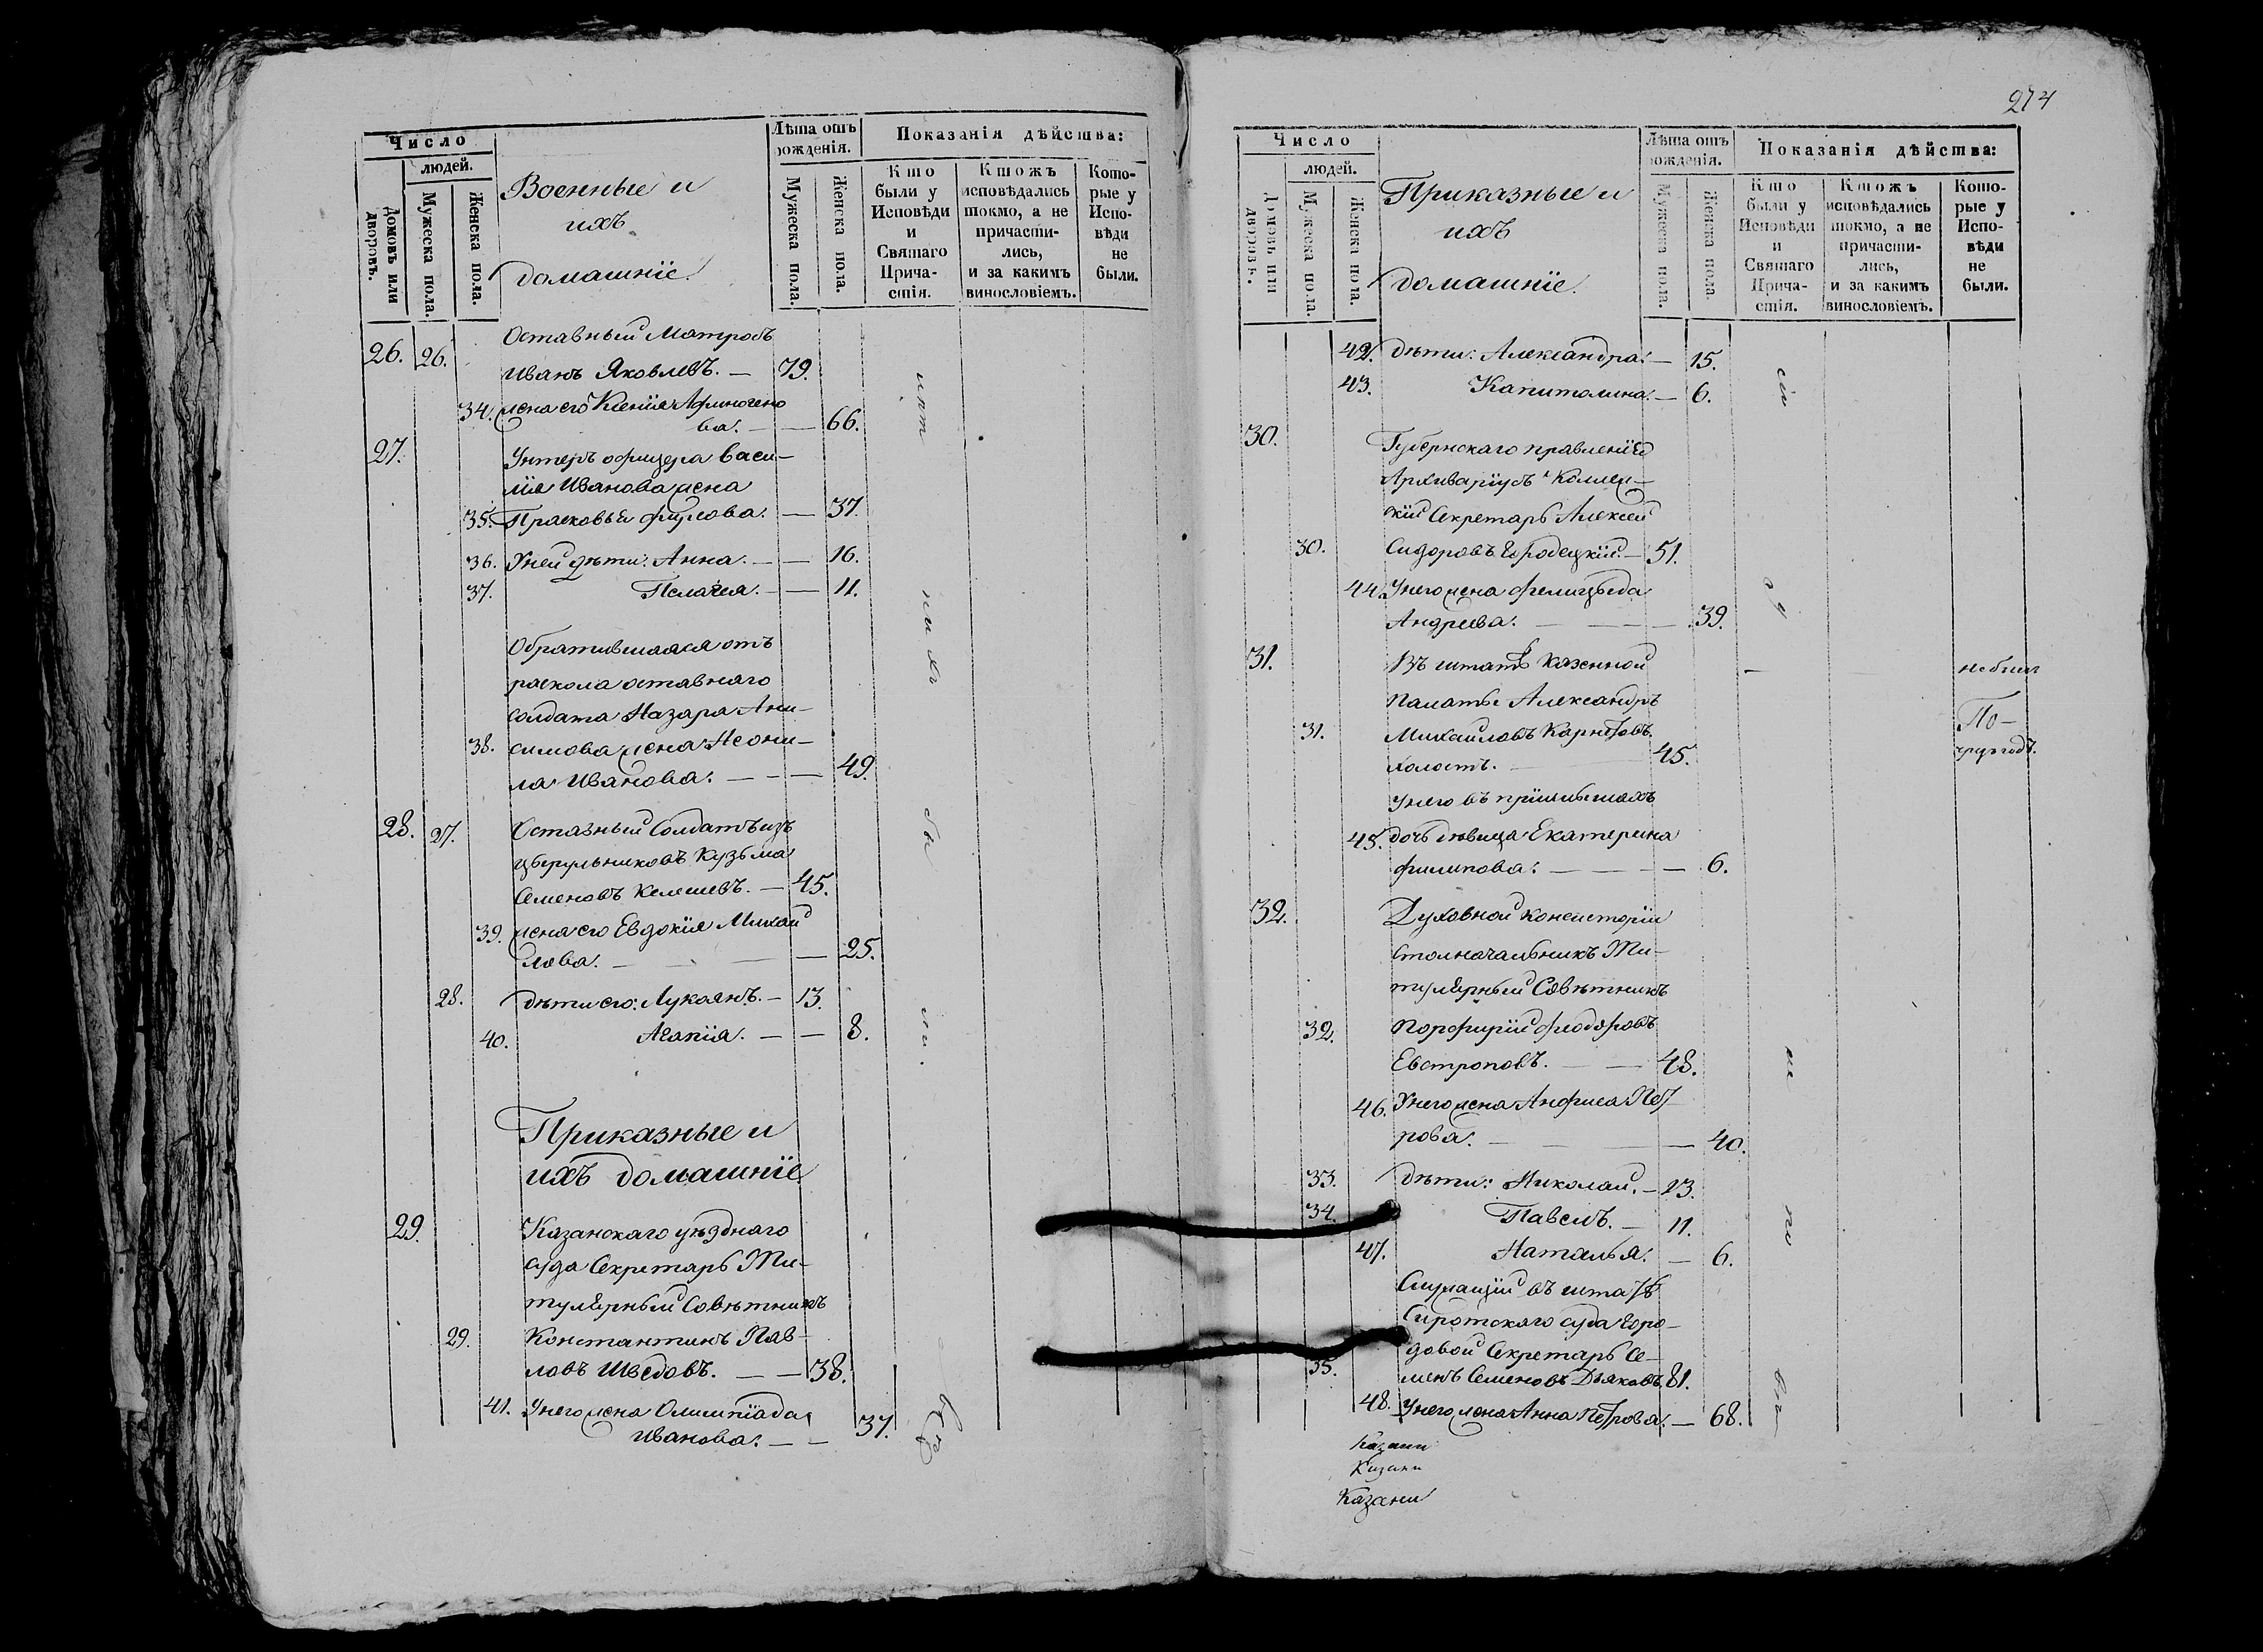 Число
людей.
Домовъ или дворовъ.
Мужеска пола.
Женска пола.
Военные и
ихъ
домашніе.
Лѣта отъ рожденія.
Мужеска пола.
Женска пола.
Показанія дѣйства:
Кто были у Исповѣди и Святаго Прича-стія.
Ктожъ исповѣдались токмо, а не причасти-лись, и за какимъ винословіемъ.
Кото-рые у Испо-вѣди не были.
Оставный Матросъ
26. 26. Иванъ Яковлевъ. — 79.
34. жена его Ксенія Афиногено
ва. — — 66.
27. Унтеръ офицера Васи-
лія Иванова жена
35. Прасковья Фирсова. — 37.
36. У ней дѣти: Анна. — — 16.
37. Пелагея. — — 11.
Обратившаяся отъ
раскола оставнаго
Солдата Назара Ани-
38. симова жена Неони-
ла Иванова. — — — 49.
28. 27. Оставный Солдатъ изъ
цырульниковъ Кузьма
Семеновъ Келешевъ. — 45.
39. жена его Евдокія Михай
лова. — — — 25.
28. дѣти его: Лукоянъ. — 13.
40. Агапія. — — 8.
Приказные и
ихъ домашніе
29. Казанскаго уѣзднаго
суда Секретарь Ти-
тулярный Совѣтникъ
29. Константинъ Пав-
ловъ Шведовъ. — — 38.
41. У него жена Олимпіада
Иванова. — — 37.
274
Число
людей.
Домовъ или дворовъ.
Мужеска пола.
Женска пола.
Приказные и
ихъ
домашніе.
Лѣта отъ рожденія.
Мужеска пола.
Женска пола.
Показанія дѣйства:
Кто были у Исповѣди и Святаго Прича-стія.
Ктожъ исповѣдались токмо, а не причасти-лись, и за какимъ винословіемъ.
Кото-рые у Испо-вѣди не были.
42. дѣти: Александра. — 15.
43. Капитолина. — 6.
30. Губернскаго правленія
Архиваріусъ Коллеж-
скій Секретарь Алексей
30. Сидоровъ Городецкій. — 51.
44. У него жена Фелицыада
Андреева. — — — 39.
31. Въ штатѣ Казенной
Палаты Александръ
31. Михаиловъ Карповъ.
холостъ. — 45.
У него въ пріимышахъ
45. дочь дѣвица Екатерина
Филипова. — — — 6.
32. Духовной консисторіи
Столначальникъ Ти-
тулярный Совѣтникъ
32. Порфирій Феодоровъ
Евстроповъ. — — 48.
46. У него жена Анфиса Пет
рова. — — — 40.
33. дѣти: Николай. — 13.
34. Павелъ. — 11.
47. Наталья. — 6.
Служащій въ штатѣ
Сиротскаго суда Горо-
довой Секретарь Се-
35. менъ Семеновъ Дьяковъ. 81.
48. У него жена Анна Петрова. — 68.
Казани
Казани
Казани